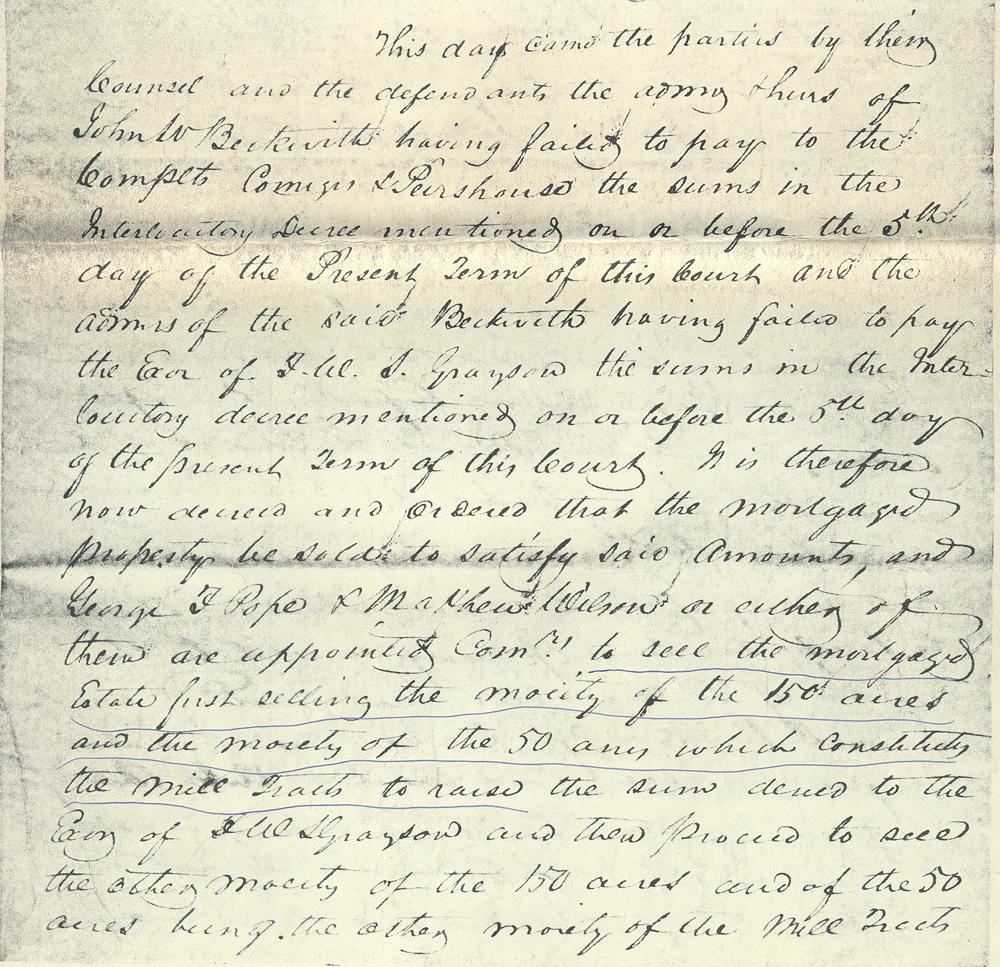 This day came the parties by their
Counsel and the defendants the admrs & heirs of
John W Beckwith having failed to pay to the
Complts Comigis & Peirshouse the sums in the
Interlocutory Decree mentioned on or before the 5th
day of the Present Term of this Court and the
admrs of the said Beckwith having failed to pay
the Exor of F. W. S. Grayson the sums in the Inter-
locutory decree mentioned on or before the 5th day
of the present Term of this Court. It is therefore
now decreed and ordered that the mortgaged
Property be sold to satisfy said Amounts, and
George F Pope & Mathew Wilson or either of
them are appointed Comrs to sell the mortgaged
Estate first selling the moiety of the 150 acres
and the moiety of the 50 acres which constitutes
the Mill Tracts to raise the sum decreed to the
Exor of F W S Grayson and then Proceed to sell
the other moiety of the 150 acres and of the 50
acres being the other moiety of the Mill Tracts